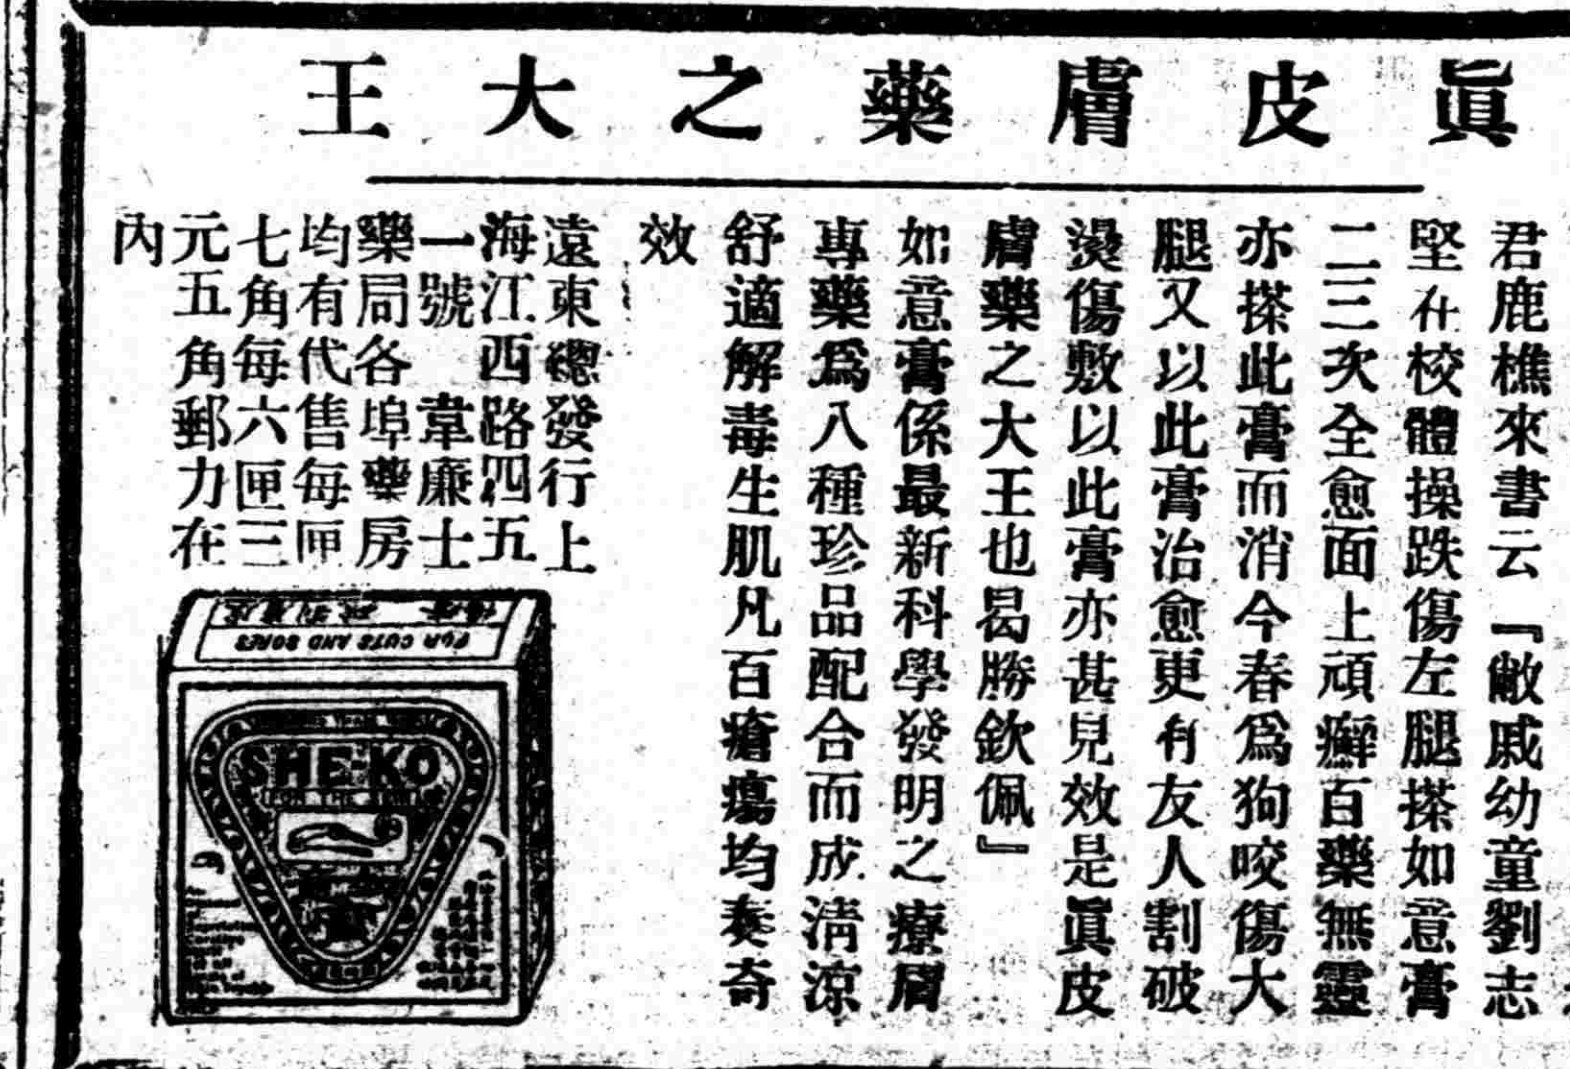 眞皮膚藥之大王
君鹿樵來書云『敝戚幼童劉志
堅在校體操跌傷左腿搽如意膏
二三次全愈面上頑癬百藥無靈
亦搽此膏而消今春爲狗咬傷大
腿又以此膏治愈更有友人割破
燙傷敷以此膏亦甚見效是眞皮
膚藥之大王也曷勝欽佩』
如意膏係最新科學發明之療膚
專藥爲八種珍品配合而成淸涼
舒適解毒生肌凡百瘡瘍均奏奇
效
遠東總發行上
海江西路四五
一號 韋廉士
藥局各埠藥房
均有代售每匣
七角每六匣三
元五角郵力在
內
FOR CUTS AND SORES
SHE-KO
FOR THE SKIN